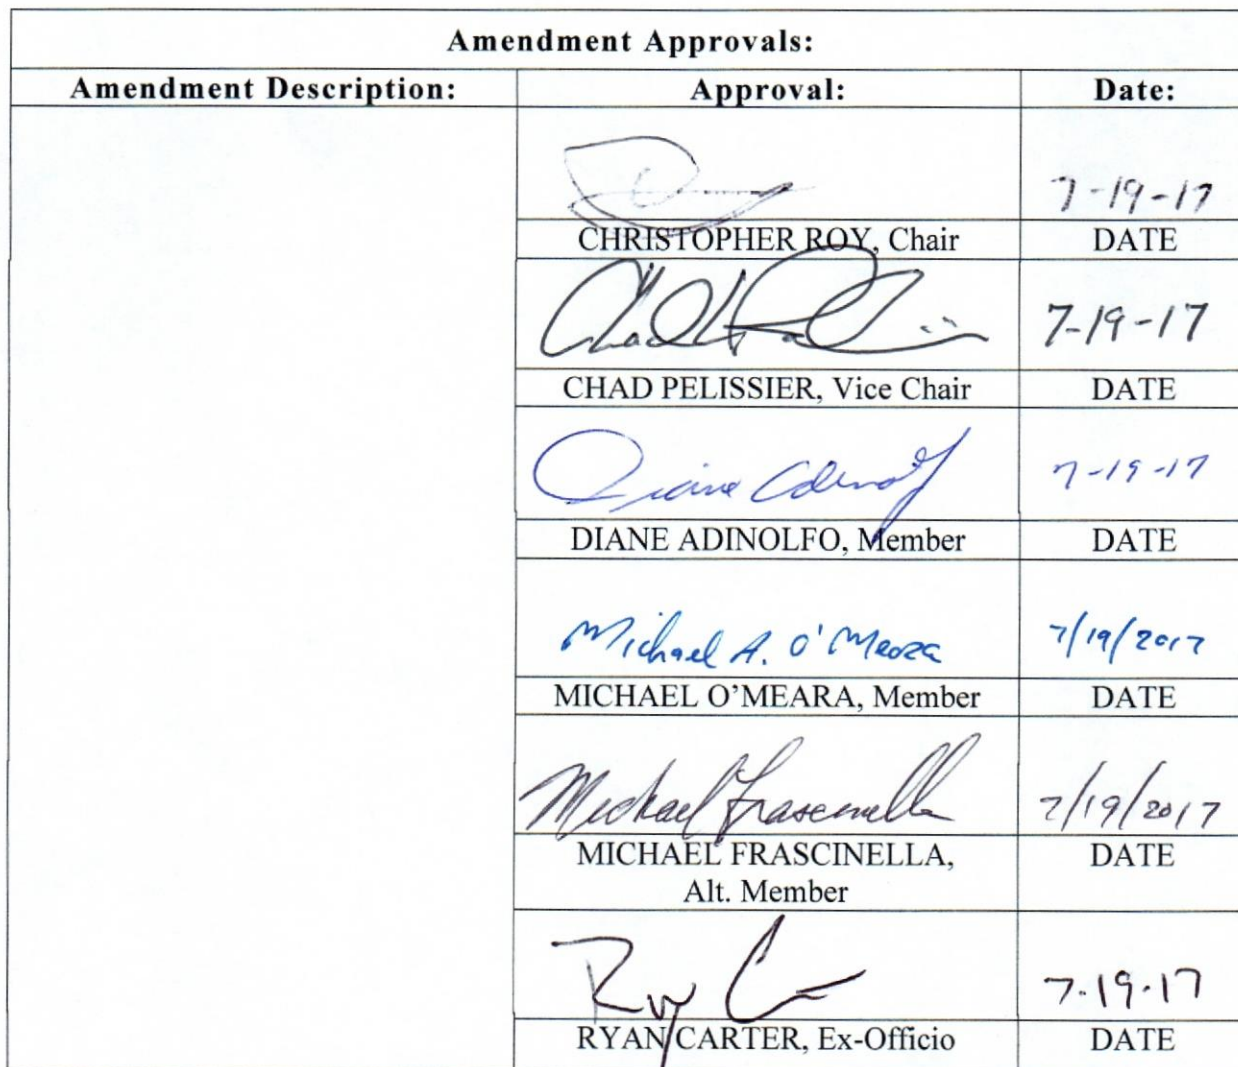 Amendment Approvals:
Amendment Description: Approval: Date:
7-19-17
CHRISTOPHER ROY, Chair DATE
Chad 7-19-17
CHAD PELISSIER, Vice Chair DATE
Diane Adinolf 7-19-17
DIANE ADINOLFO, Member DATE
Michael A. O'Meara 7/19/2017
MICHAEL O'MEARA, Member DATE
Michael Frascinella 7/19/2017
MICHAEL FRASCINELLA, DATE
Alt. Member
7-19-17
RYAN CARTER, Ex-Officio DATE